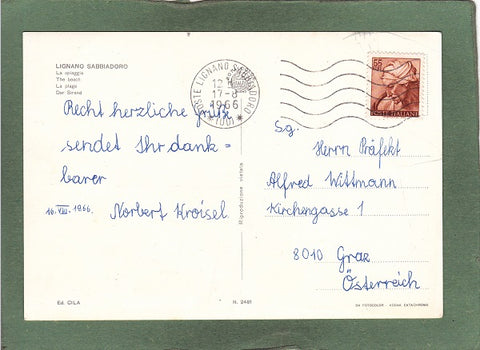 LIGNANO SABBIADORO
La spiaggia
The beach
La plage
Der Strand
Recht herzliche Grüße
sendet Ihr dank=
barer
16. VIII. 1966. Norbert Kroisel
POSTE LIGNANO SABBIADORO
12
17-8
1966
(UD)
Riproduzione vietata
POSTE ITALIANE
Sg.
Herrn Präfekt
Alfred Wittmann
Kirchengasse 1
8010 Graz
Österreich
Ed. CILA
N. 2481
DA FOTOCOLOR - KODAK EKTACHROME